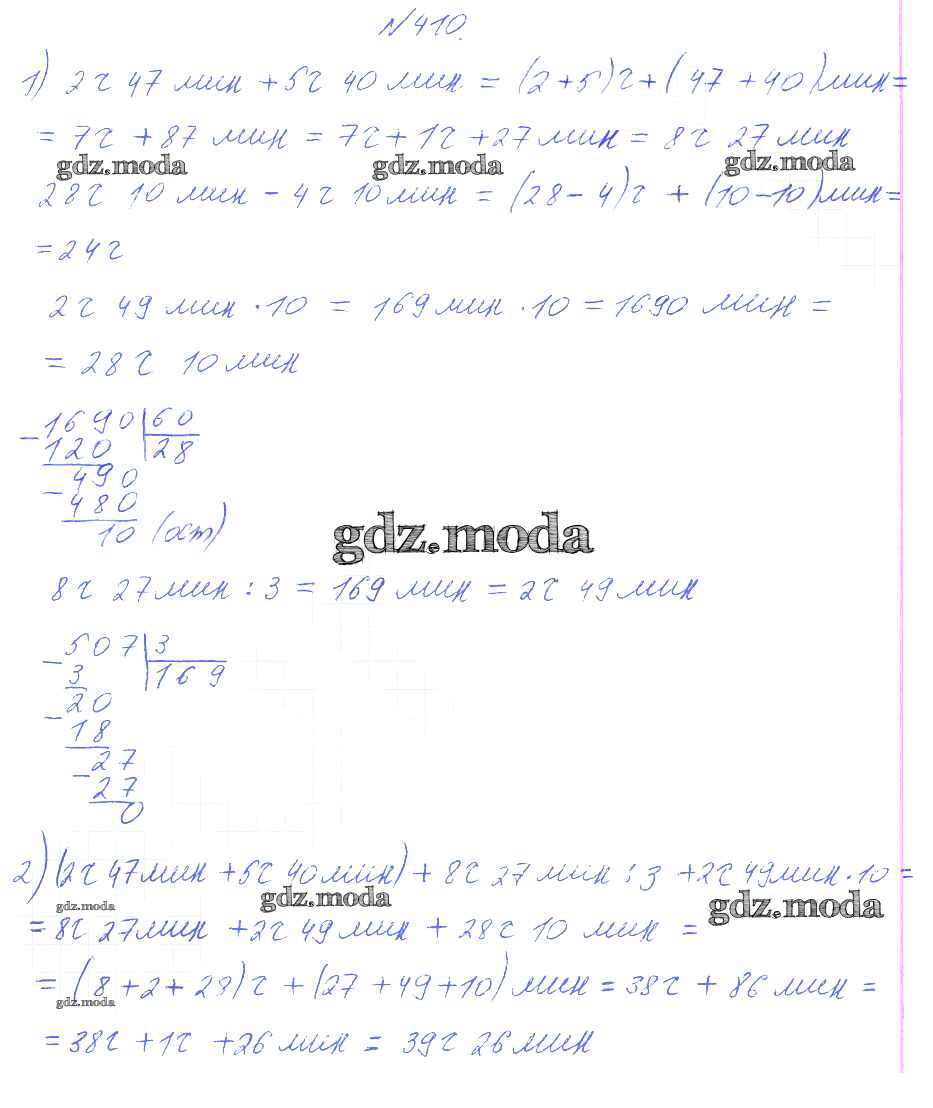 №410.
1) 2ч 47 мин + 5ч 40 мин = (2+5)ч + (47+40)мин =
= 7ч + 87 мин = 7ч + 1ч + 27 мин = 8ч 27 мин
gdz.moda gdz.moda gdz.moda
28ч 10 мин - 4ч 10 мин = (28-4)ч + (10-10)мин =
= 24ч
2ч 49 мин · 10 = 169 мин · 10 = 1690 мин =
= 28ч 10 мин
- 1690 | 60
120 | 28
490
- 480
10 (ост)
gdz.moda
8ч 27 мин : 3 = 169 мин = 2ч 49 мин
- 507 | 3
3 | 169
- 20
18
- 27
27
0
2) (2ч 47 мин + 5ч 40 мин) + 8ч 27 мин : 3 + 2ч 49 мин · 10 =
gdz.moda gdz.moda gdz.moda
= 8ч 27 мин + 2ч 49 мин + 28ч 10 мин =
= (8+2+28)ч + (27+49+10) мин = 38ч + 86 мин =
gdz.moda
= 38ч + 1ч + 26 мин = 39ч 26 мин